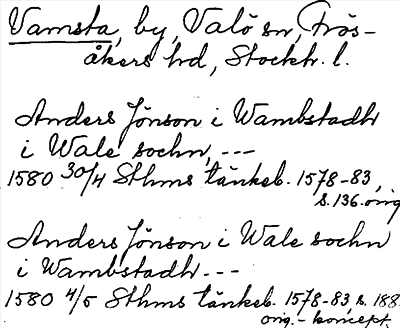 Vamsta, by, Valö sn, Frös-
åkers hd, Stockh. l.
Anders Jönson i Wambstadh
i Wale sochn, ---
1580 30/4 Sthms tänkeb. 1578-83,
s. 136. orig
Anders Jönson i Wale sochn
i Wambstadh ---
1580 4/5 Sthms tänkeb. 1578-83, s. 188.
orig.- koncept.